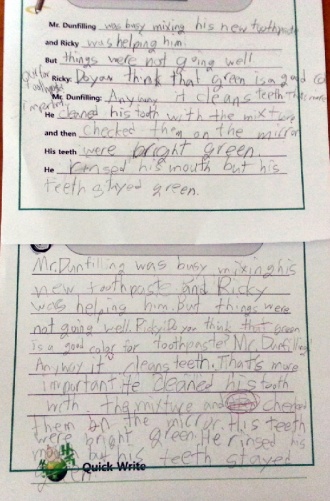 Mr. Dunfilling was busy mixing his new toothpaste
and Ricky was helping him.
But things were not going well
Ricky: Do you think that green is a good
Mr. Dunfilling: Anyway it cleans teeth
important
He cleaned his tooth with the mixture
and then checked them on the mirror
His teeth were bright green.
He rinsed his mouth but his
teeth stayed green.
Mr. Dunfilling was busy mixing his
new toothpaste and Ricky
was helping him. But things were
not going well. Ricky: Do you think that green
is a good color for toothpaste? Mr. Dunfilling:
Anyway it cleans teeth. That's more
important. He cleaned his tooth
with the mixture and checked
them on the mirror. His teeth
were bright green. He rinsed his
but his teeth stayed
Quick Write